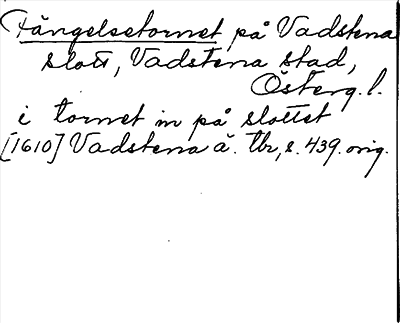 Fängelsetornet på Vadstena
slott, Vadstena stad,
Österg. l.
i tornet in på slottet
[1610] Vadstena ä. tbr, s. 439. orig.